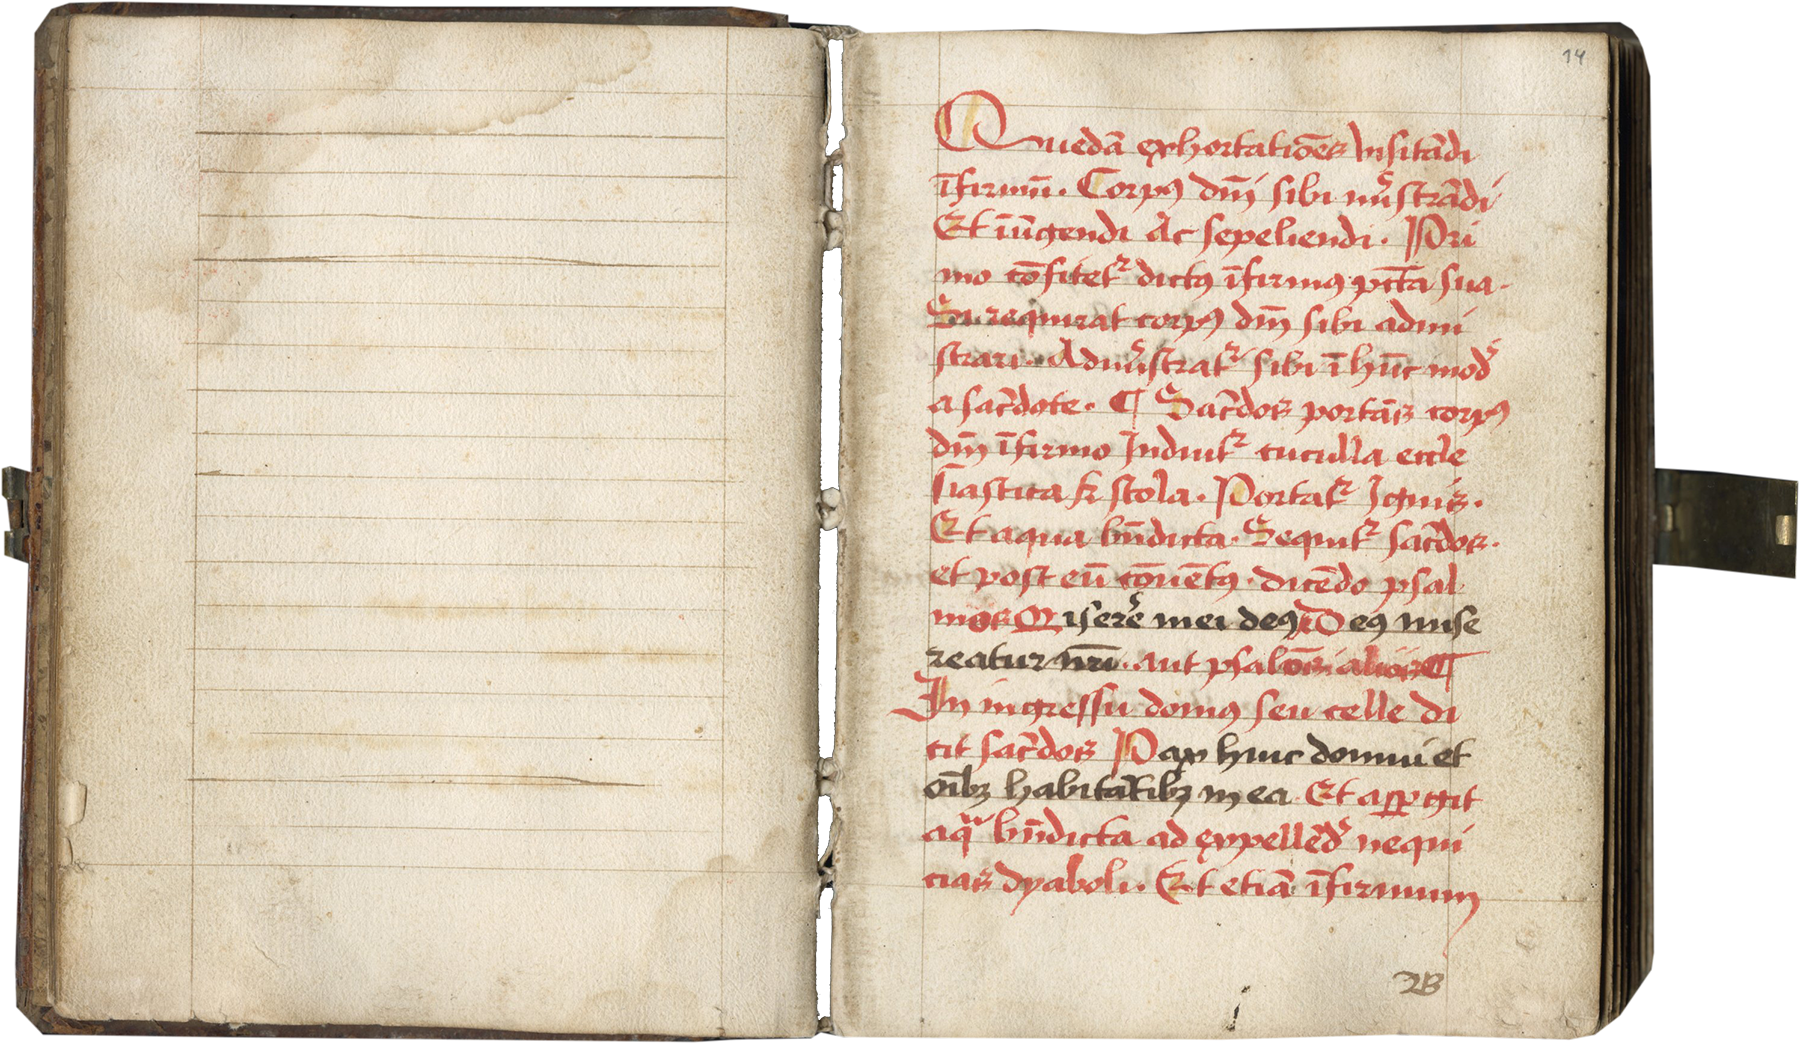 14
Quedā exhortatiōes visitādi
īfirmū. Corpꝰ dn̄i sibi mīstrādi
Et iūgendi Ac sepeliendi. Pri
mo cōfitetᷣ dictꝰ īfirmꝰ pctā sua.
Si requirat corpꝰ dn̄i sibi admi
strari. Admīstratᷣ sibi ī hūc mod
a sac̄dote. ¶ Sac̄dos portās corpꝰ
dn̄i īfirmo Induitᷣ cuculla eccle
siastica stola. Portatᷣ Ignis.
Et aqua bn̄dicta. Sequitᷣ sac̄dos.
et post eū cōuētꝰ. dicēdo psal
mos Miserē mei deꝰ Deꝰ mise
reatur nr̄i. aut psalmōs alios ¶
In ingressu domꝰ seu celle di
cit sac̄dos Pax huic domui et
oīb habitātibꝫ in ea. Et aspgit
aqᷓ bn̄dicta ad expellēd nequi
cias dyaboli. Et etiā īfirmum